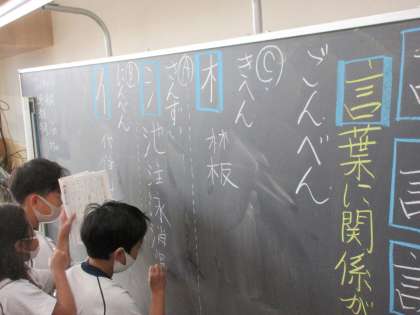 言
言
言
言葉に関係が
ごんべん
Ⓒきへん
木 林板
Ⓐさんずい
氵 池注泳消
Ⓑにんべん
亻